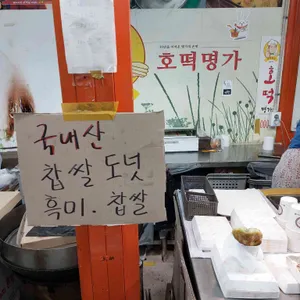 호떡명가
호떡
명가
국내산
찹쌀도넛
흑미. 찹쌀